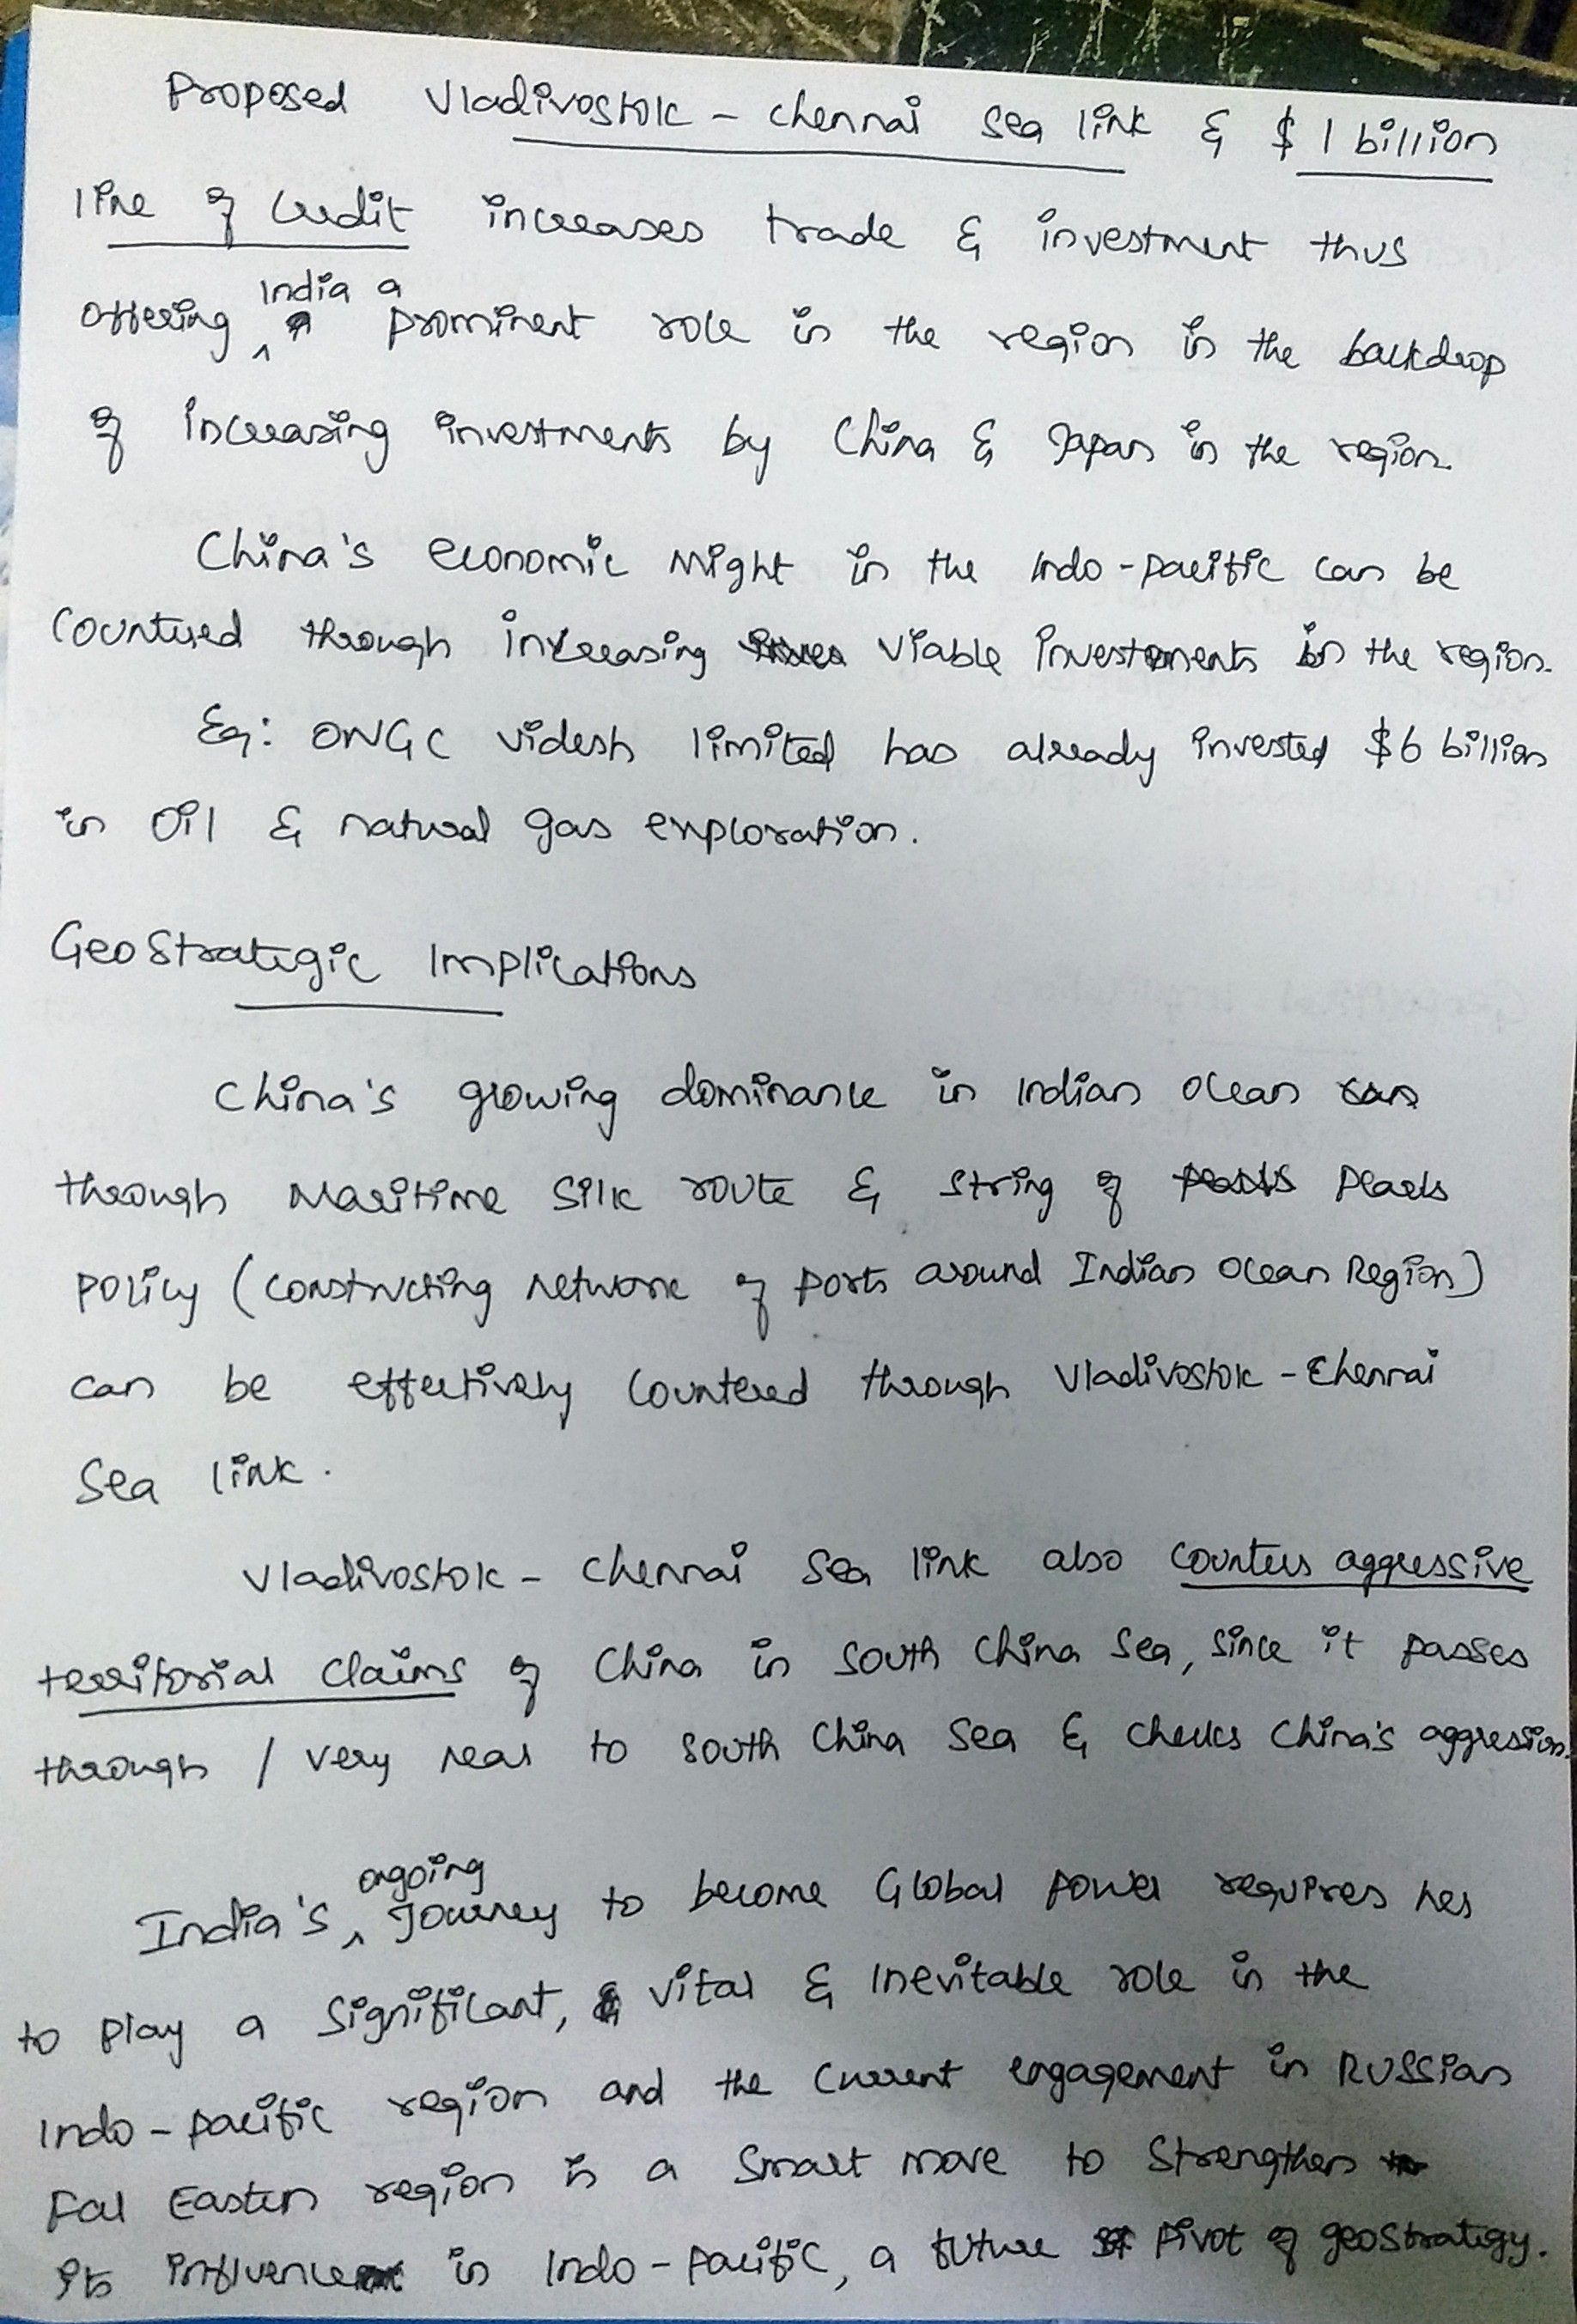 Proposed Vladivostok - Chennai sea link & $ 1 billion
line of credit increases trade & investment thus
offering India a prominent role in the region in the backdrop
of increasing investments by China & Japan in the region.
China's economic might in the Indo-pacific can be
countered through increasing viable investments in the region.
Eg: ONGC Videsh limited has already invested $6 billion
in Oil & natural gas exploration.
GeoStrategic Implications
China's growing dominance in Indian Ocean
through Maritime Silk route & String of Pearls
policy (constructing network of ports around Indian Ocean Region)
can be effectively countered through Vladivostok - Chennai
Sea link.
Vladivostok - Chennai Sea link also counters aggressive
territorial claims of China in South China Sea, since it passes
through / very near to South China Sea & checks China's aggression.
India's ongoing Journey to become Global power requires her
to play a significant, vital & inevitable role in the
Indo-pacific region and the current engagement in Russian
Far Eastern region is a smart move to strengthen
its influence in Indo-Pacific, a future pivot of geostrategy.